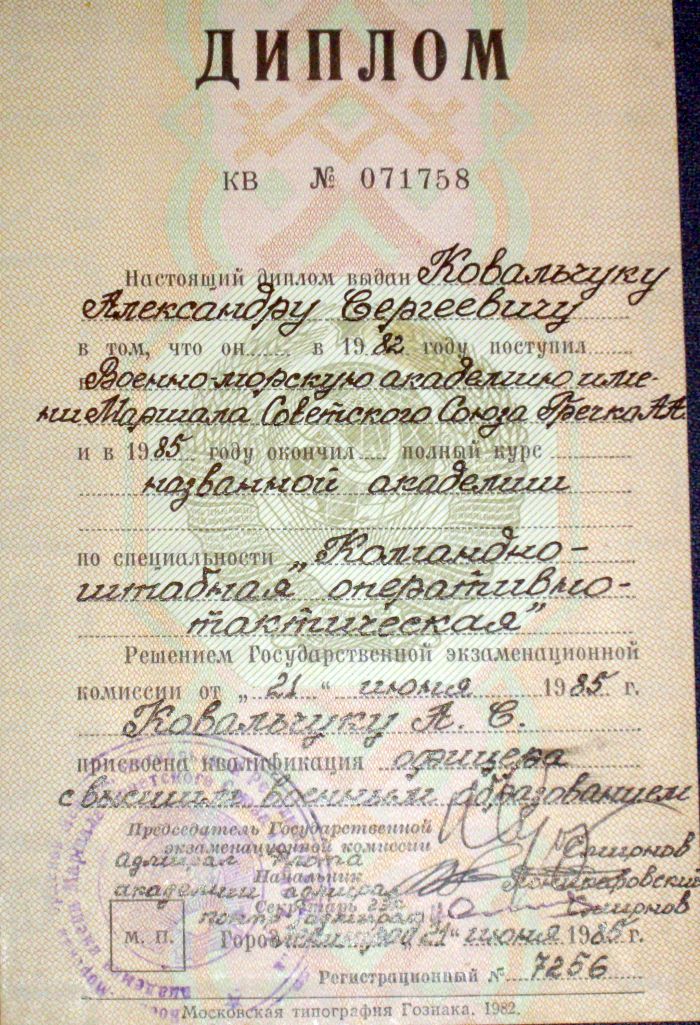 ДИПЛОМ
КВ № 071758
Настоящий диплом выдан Ковальчуку
Александру Сергеевичу
в том, что он в 1982 году поступил
в Военно-морскую академию име-
ни Маршала Советского Союза Гречко А.А.
и в 1985 году окончил полный курс
названной академии
по специальности „Командно-
штабная оперативно-
тактическая"
Решением Государственной экзаменационной
комиссии от „21" июня 1985 г.
Ковальчуку А. С.
присвоена квалификация офицера
с высшим военным образованием
Председатель Государственной
экзаменационной комиссии
адмирал флота Смирнов
Начальник
академии адмирал Поникаровский
Секретарь ГЭК
контр-адмирал Смирнов
М. П.
Город Ленинград „21" июня 1985 г.
Регистрационный № 7256
Московская типография Гознака. 1982.